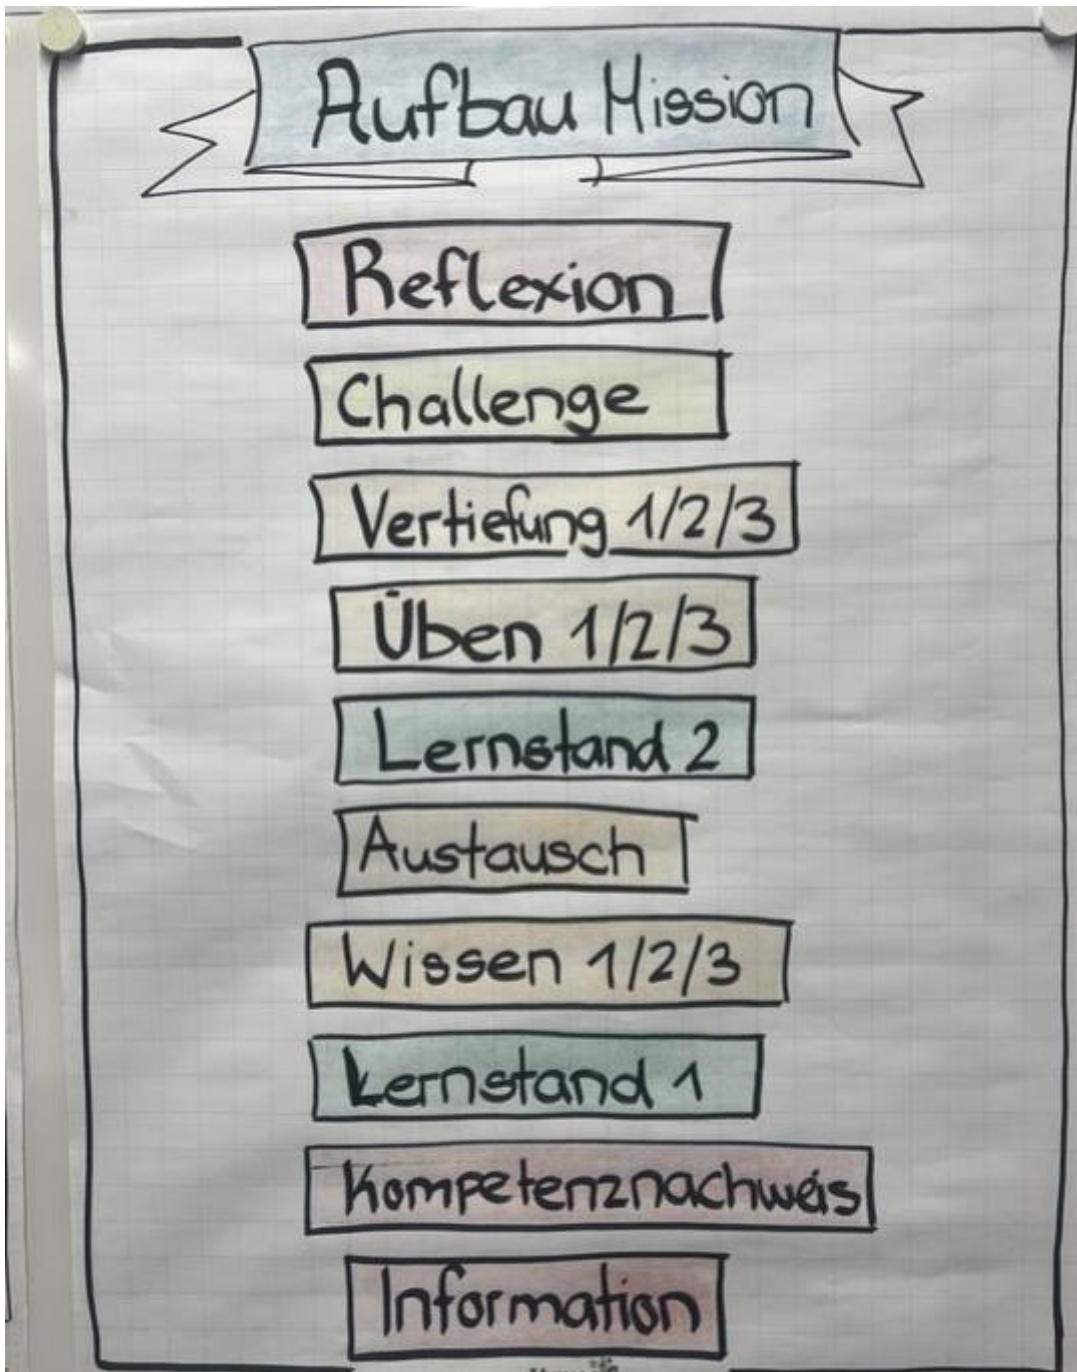 Aufbau Mission
Reflexion
Challenge
Vertiefung 1/2/3
Üben 1/2/3
Lernstand 2
Austausch
Wissen 1/2/3
Lernstand 1
Kompetenznachweis
Information